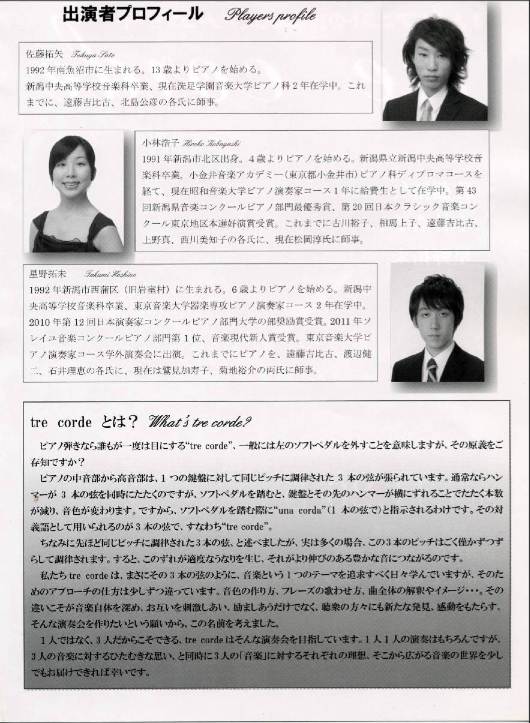 出演者プロフィール Players profile
佐藤拓矢 Takuya Sato
1992年南魚沼市に生まれる。13歳よりピアノを始める。
新潟中央高等学校音楽科卒業、現在洗足学園音楽大学ピアノ科2年在学中。これ
までに、遠藤吉比古、北島公彦の各氏に師事。
小林浩子 Hiroko Kobayashi
1991年新潟市北区出身。4歳よりピアノを始める。新潟県立新潟中央高等学校音
楽科卒業、小金井音楽アカデミー(東京都小金井市)ピアノ科ディプロマコースを
経て、現在昭和音楽大学ピアノ演奏家コース1年に給費生として在学中。第43
回新潟県音楽コンクールピアノ部門最優秀賞、第20回日本クラシック音楽コン
クール東京地区本選好演賞受賞。これまでに古川裕子、相馬上子、遠藤吉比古、
上野真、西川美知子の各氏に、現在松岡淳氏に師事。
星野拓未 Takumi Hoshino
1992年新潟市西蒲区(旧岩室村)に生まれる。6歳よりピアノを始める。新潟中
央高等学校音楽科卒業、東京音楽大学器楽専攻ピアノ演奏家コース2年在学中。
2010年第12回日本演奏家コンクールピアノ部門大学の部奨励賞受賞。2011年ソ
レイユ音楽コンクールピアノ部門第1位、音楽現代新人賞受賞。東京音楽大学ピ
アノ演奏家コース学外演奏会に出演。これまでにピアノを、遠藤吉比古、渡辺健
二、石井理恵の各氏に、現在は鷲見加寿子、菊地裕介の両氏に師事。
tre corde とは? What's tre corde?
ピアノ弾きなら誰もが一度は目にする“tre corde”、一般には左のソフトペダルを外すことを意味しますが、その原義をご
存知ですか?
ピアノの中音部から高音部は、1つの鍵盤に対して同じピッチに調律された3本の弦が張られています。通常ならハン
マーが3本の弦を同時にたたくのですが、ソフトペダルを踏むと、鍵盤とその先のハンマーが横にずれることでたたく本数
が減り、音色が変わります。ですから、ソフトペダルを踏む際に“una corda”(1本の弦で)と指示されるわけです。その対
義語として用いられるのが3本の弦で、すなわち“tre corde”。
ちなみに先ほど同じピッチに調律された3本の弦、と述べましたが、実は多くの場合、この3本のピッチはごく僅かずつず
らして調律されます。すると、このずれが適度なうなりを生じ、それがより伸びのある豊かな音につながるのです。
私たち tre corde は、まさにその3本の弦のように、音楽という1つのテーマを追求すべく日々学んでいますが、そのた
めのアプローチの仕方は少しずつ違っています。音色の作り方、フレーズの歌わせ方、曲全体の解釈やイメージ・・・。その
違いこそが音楽自体を深め、お互いを刺激しあい、励ましあうだけでなく、聴衆の方々にも新たな発見、感動をもたらす。
そんな演奏会を作りたいという願いから、この名前を考えました。
1人ではなく、3人だからこそできる、tre corde はそんな演奏会を目指しています。1人1人の演奏はもちろんですが、
3人の音楽に対するひたむきな思い、と同時に3人の「音楽」に対するそれぞれの理想、そこから広がる音楽の世界を少し
でもお届けできれば幸いです。